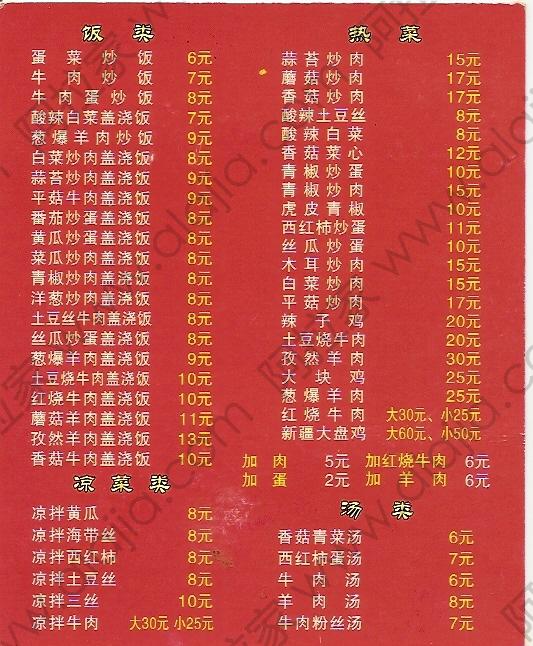 饭类
蛋菜炒饭 6元
牛肉炒饭 7元
牛肉蛋炒饭 8元
酸辣白菜盖浇饭 7元
葱爆羊肉炒饭 9元
白菜炒肉盖浇饭 8元
蒜苔炒肉盖浇饭 9元
平菇牛肉盖浇饭 9元
番茄炒蛋盖浇饭 8元
黄瓜炒蛋盖浇饭 8元
菜瓜炒肉盖浇饭 8元
青椒炒肉盖浇饭 8元
洋葱炒肉盖浇饭 8元
土豆丝牛肉盖浇饭 8元
丝瓜炒蛋盖浇饭 8元
葱爆羊肉盖浇饭 9元
土豆烧牛肉盖浇饭 10元
红烧牛肉盖浇饭 10元
蘑菇羊肉盖浇饭 11元
孜然羊肉盖浇饭 13元
香菇牛肉盖浇饭 10元
热菜
蒜苔炒肉 15元
蘑菇炒肉 17元
香菇炒肉 17元
酸辣土豆丝 8元
酸辣白菜 8元
香菇菜心 12元
青椒炒蛋 10元
青椒炒肉 15元
虎皮青椒 10元
西红柿炒蛋 11元
丝瓜炒蛋 10元
木耳炒肉 15元
白菜炒肉 15元
平菇炒肉 17元
辣子鸡 20元
土豆烧牛肉 20元
孜然羊肉 30元
大块鸡 25元
葱爆羊肉 25元
红烧牛肉 大30元、小25元
新疆大盘鸡 大60元、小50元
加肉 5元 加红烧牛肉 6元
加蛋 2元 加羊肉 6元
凉菜类
凉拌黄瓜 8元
凉拌海带丝 8元
凉拌西红柿 8元
凉拌土豆丝 8元
凉拌三丝 10元
凉拌牛肉 大30元 小25元
汤类
香菇青菜汤 6元
西红柿蛋汤 7元
牛肉汤 6元
羊肉汤 8元
牛肉粉丝汤 7元